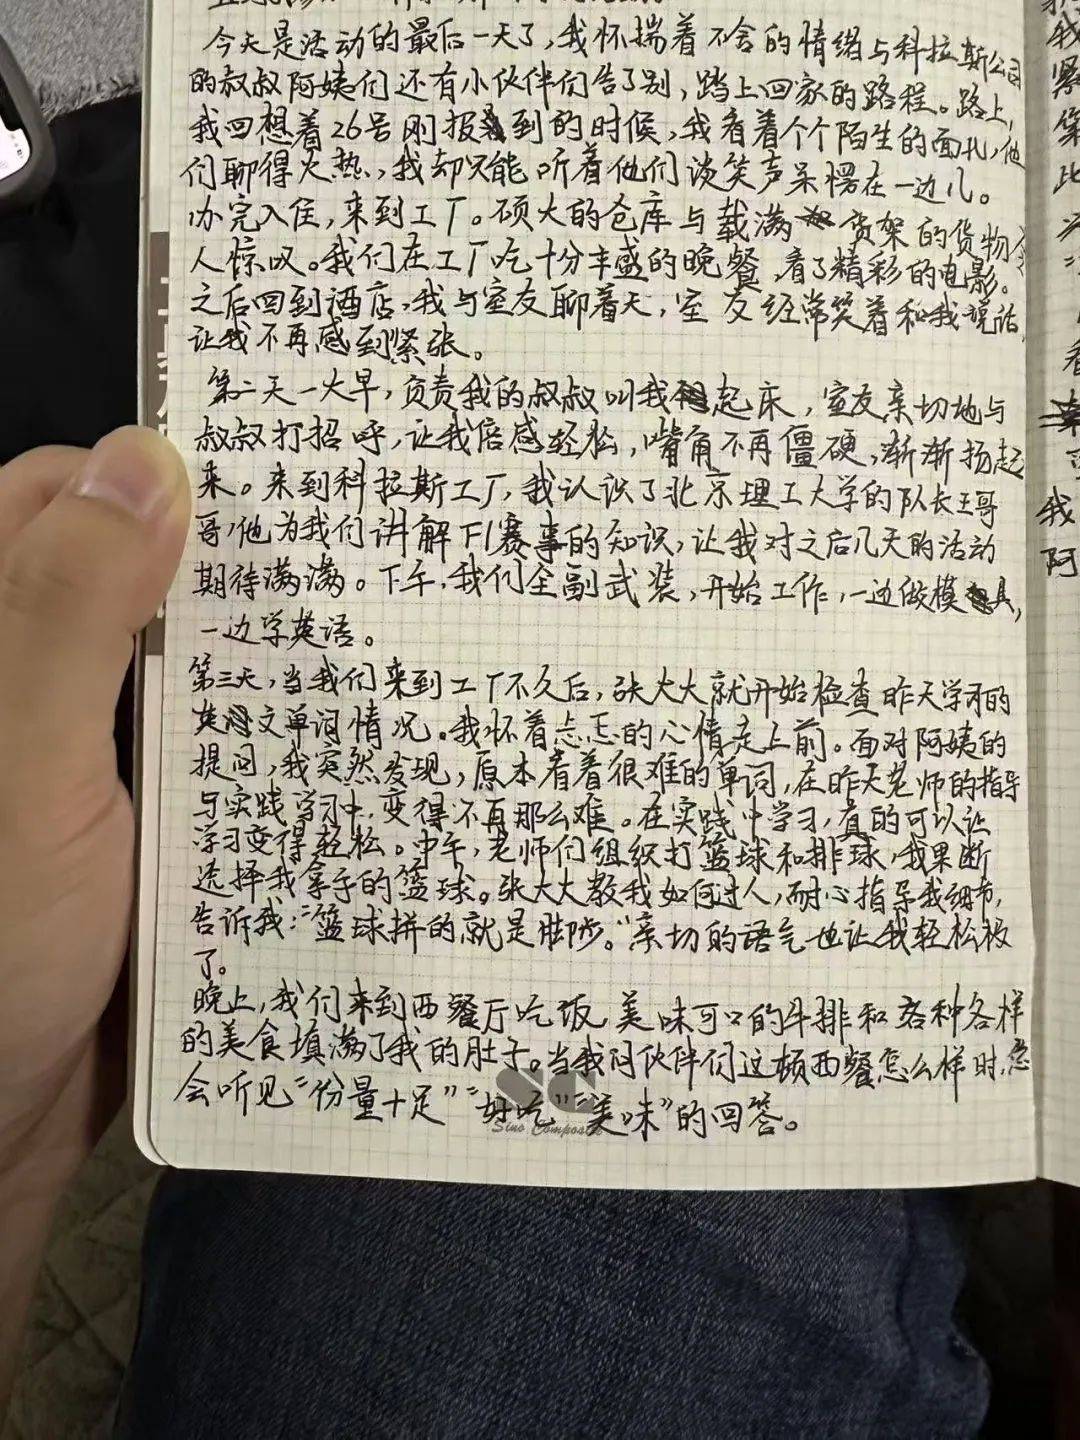 今天是活动的最后一天了,我怀揣着不舍的情绪与科拉斯公司
的叔叔阿姨们还有小伙伴们告了别,踏上回家的路程。路上,
我回想着26号刚报到的时候,我看着个个陌生的面孔,他
们聊得火热,我却只能听着他们谈笑声呆愣在一边儿。
办完入住,来到工厂。硕大的仓库与载满货架的货物令
人惊叹。我们在工厂吃十分丰盛的晚餐,看了精彩的电影。
之后回到酒店,我与室友聊着天,室友经常笑着和我说话,
让我不再感到紧张。
第二天一大早,负责我的叔叔叫我起床,室友亲切地与
叔叔打招呼,让我倍感轻松,嘴角不再僵硬,渐渐扬起
来。来到科拉斯工厂,我认识了北京理工大学的队长王哥
哥,他为我们讲解F1赛事的知识,让我对之后几天的活动
期待满满。下午,我们全副武装,开始工作,一边做模具,
一边学英语。
第三天,当我们来到工厂不久后,张大大就开始检查昨天学习的
英文单词情况。我怀着忐忑的心情走上前。面对阿姨的
提问,我突然发现,原本看着很难的单词,在昨天老师的指导
与实践学习中,变得不再那么难。在实践中学习,真的可以让
学习变得轻松。中午,老师们组织打篮球和排球,我果断
选择我拿手的篮球。张大大教我如何过人,耐心指导我细节,
告诉我:“篮球拼的就是脚步。”亲切的语气也让我轻松极
了。
晚上,我们来到西餐厅吃饭,美味可口的牛排和各种各样
的美食填满了我的肚子。当我问伙伴们这顿西餐怎么样时,总
会听见“份量十足”“好吃”“美味”的回答。
SC
Sino Composite
我
阿